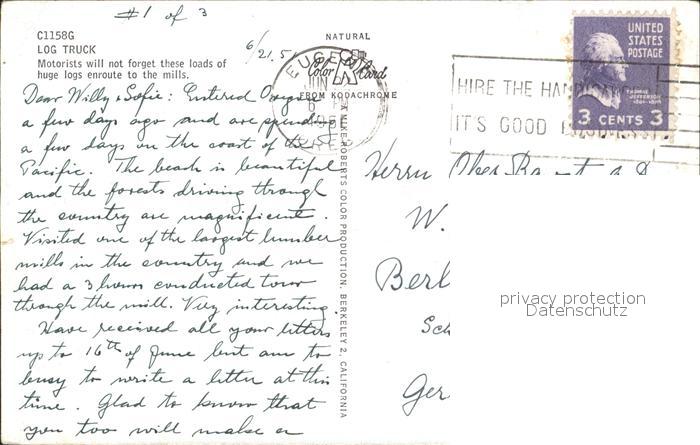 #1 of 3
C1158G
LOG TRUCK
Motorists will not forget these loads of
huge logs enroute to the mills.
NATURAL
Color Card
FROM KODACHROME
6/21.5
EUGENE
JUN
HIRE THE
IT'S GOOD
UNITED
STATES
POSTAGE
THOMAS
JEFFERSON
3 CENTS 3
Dear Willy & Sofie: Entered Oregon
a few days ago and are spending
a few days on the coast of the
Pacific. The beach is beautiful
and the forests driving through
the country are magnificent.
Visited one of the largest lumber
mills in the country and we
had a 3 hours conducted tour
through the mill. Very interesting.
Have received all your letters
up to 16th of June but am to
busy to write a letter at this
time. Glad to know that
you too will make a
A MIKE ROBERTS COLOR PRODUCTION, BERKELEY 2, CALIFORNIA
Herrn
W.
Berl
Sch
Ger
privacy protection
Datenschutz